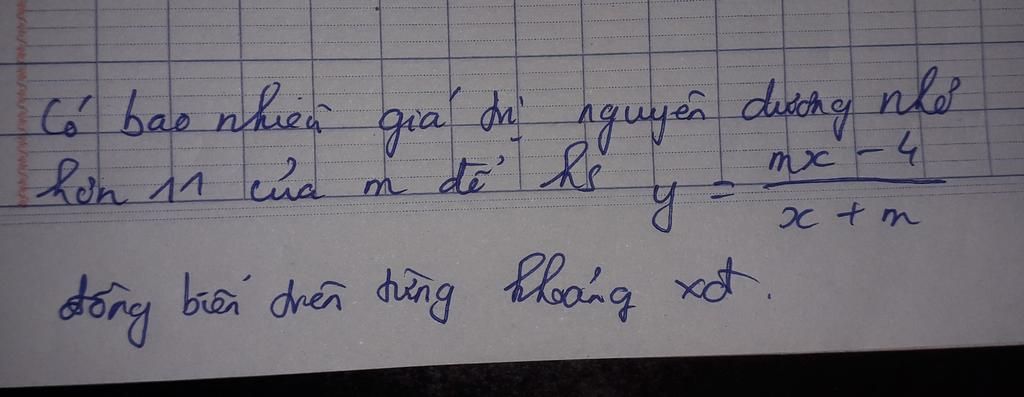 Có bao nhiêu giá trị nguyên dương nhỏ
hơn 11 của m để hs y = \frac{mx - 4}{x + m}
đồng biến trên từng khoảng xđ.